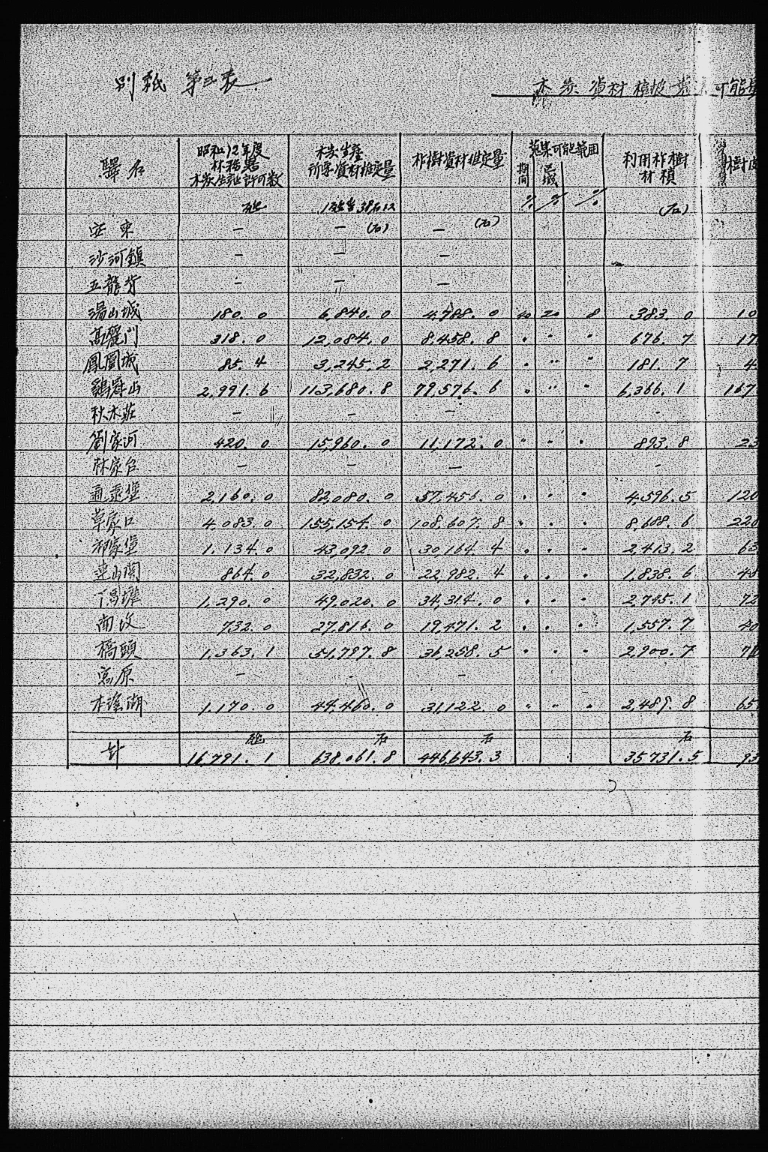 別紙 第二表
木炭資材 可能量
驛名 昭和12年度 木炭生産許可数 木炭生産所要資材推定量 柞樹資材推定量 蒐集可能範囲 期間 利用柞樹材積
% % % (石)
安東 — — (石) — (石)
沙河鎮 — — —
五龍背 — — —
湯山城 180.0 6,840.0 4,788.0 20 8 383.0
高麗門 318.0 12,084.0 8,458.8 〃 〃 〃 676.7
鳳凰城 85.4 3,245.2 2,271.6 〃 〃 〃 181.7
鷄冠山 2,991.6 113,680.8 79,576.6 〃 〃 〃 6,366.1
秋木荘 — — — —
劉家河 420.0 15,960.0 11,172.0 〃 〃 〃 893.8
林家台 — — — —
通遠堡 2,160.0 82,080.0 57,456.0 〃 〃 〃 4,596.5
草家口 4,083.0 155,154.0 108,607.8 〃 〃 〃 8,688.6
祁家堡 1,134.0 43,092.0 30,164.4 〃 〃 〃 2,413.2
連山関 864.0 32,832.0 22,982.4 〃 〃 〃 1,838.6
下馬塘 1,290.0 49,020.0 34,314.0 〃 〃 〃 2,745.1
南坟 732.0 27,816.0 19,471.2 〃 〃 〃 1,557.7
橋頭 1,363.1 51,797.8 36,258.5 〃 〃 〃 2,900.7
宮原 — — — —
本溪湖 1,170.0 44,460.0 31,122.0 〃 〃 〃 2,489.8
石 石 石
計 16,791.1 638,061.8 446,643.3 35,731.5